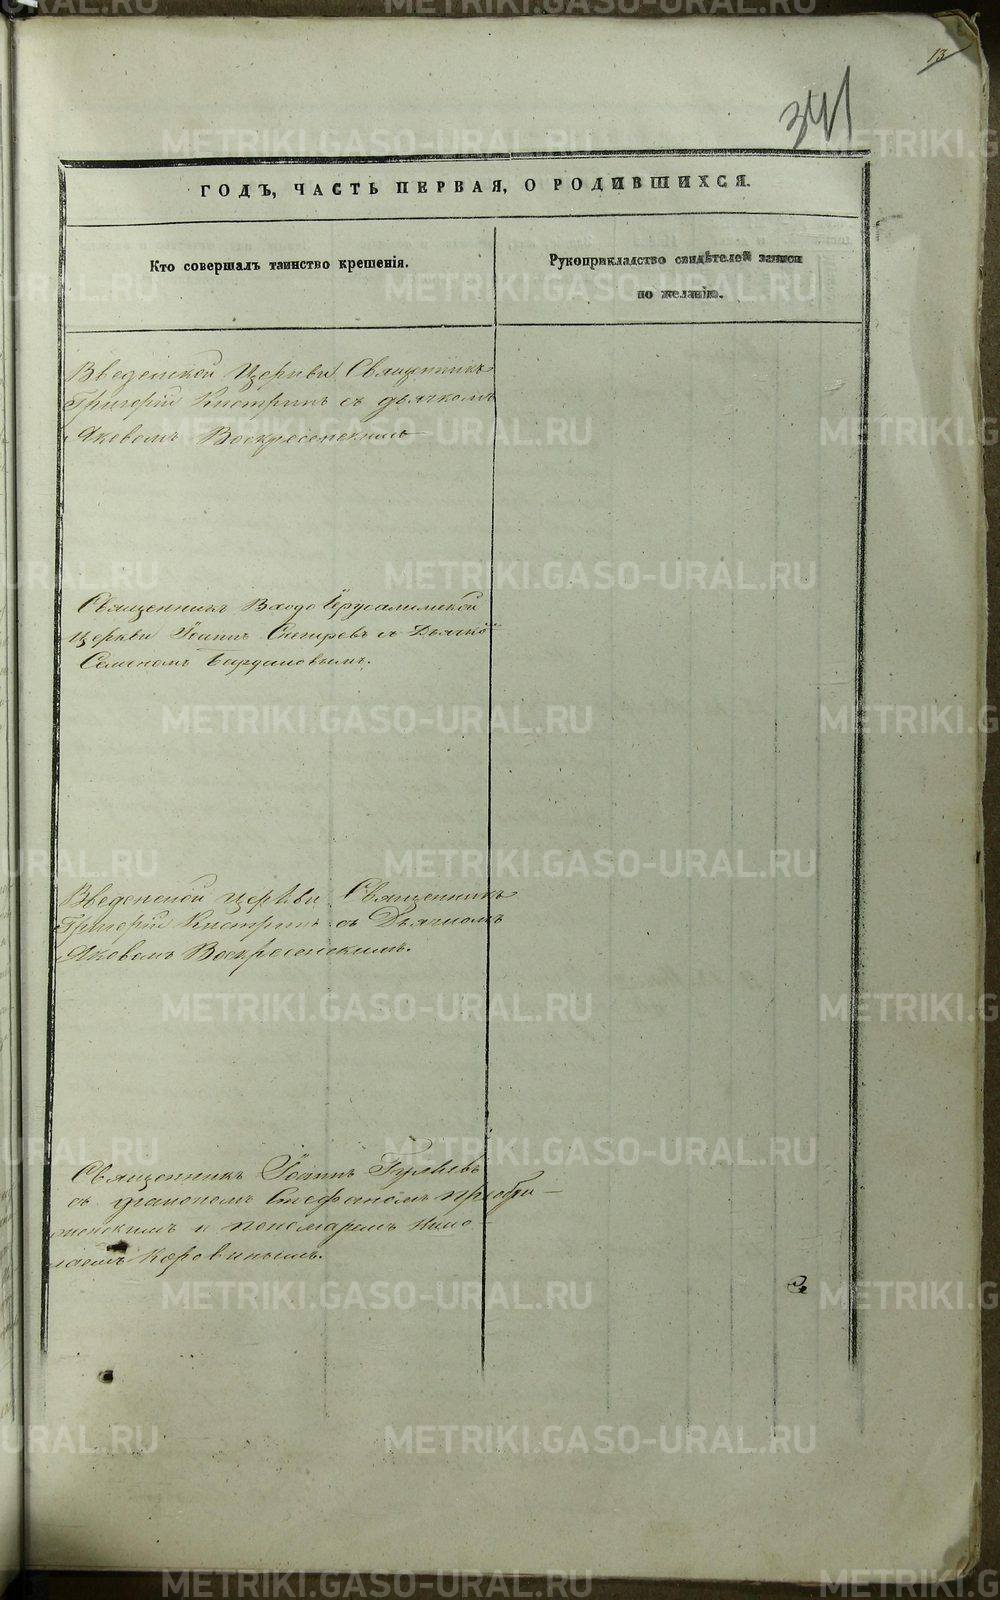 13
341
ГОДЪ, ЧАСТЬ ПЕРВАЯ, О РОДИВШИХСЯ.
Кто совершалъ таинство крещенія.
Рукоприкладство свидѣтелей записи
по желанію.
Введенской Церкви Священникъ
Григорій Кистринъ съ дьячкомъ
Яковомъ Воскресенскимъ
Священникъ Входо Іерусалимской
Церкви Іоаннъ Снгиревъ съ Дьячко
Семеномъ
Введенской Церкви Священникъ
Григорій Кистринъ съ Дьячкомъ
Яковомъ Воскресенскимъ.
Священникъ Іоаннъ Гурьевъ
съ діакономъ Стефаномъ
и пономаремъ Нико-
лаемъ Коровинымъ.
METRIKI.GASO-URAL.RU